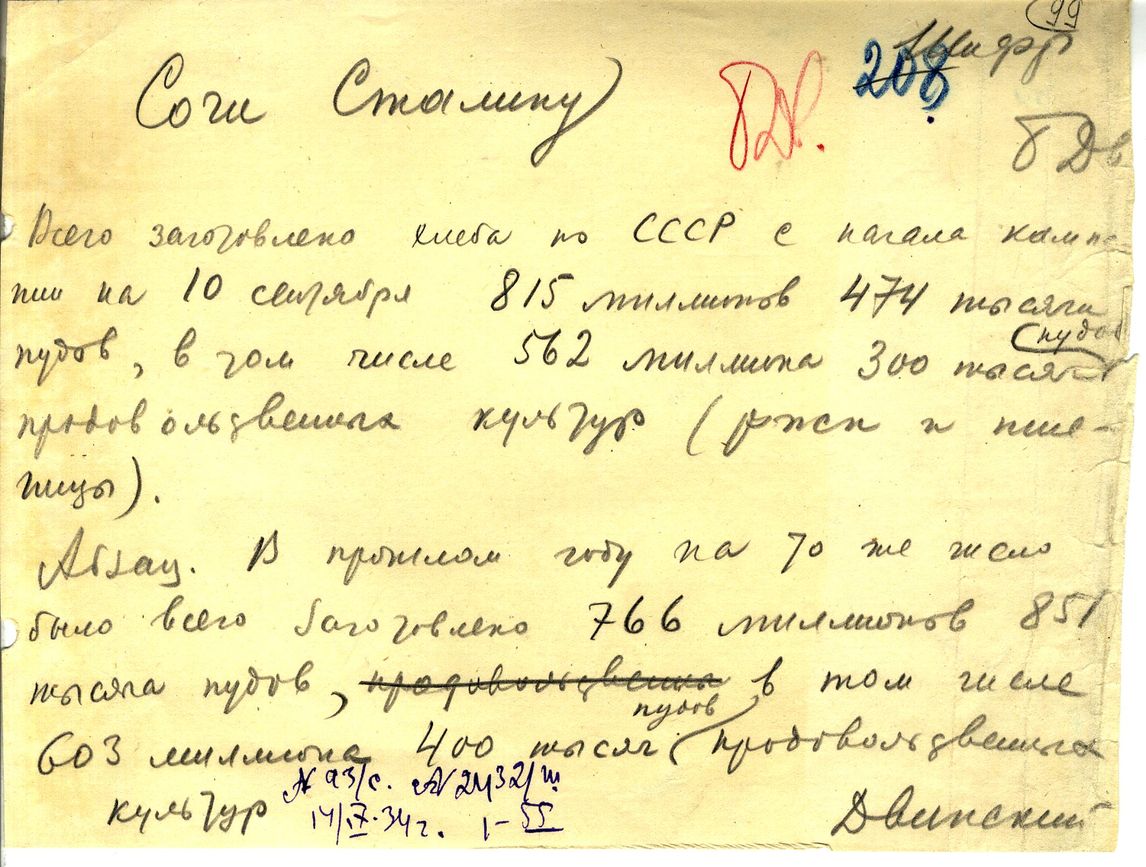 99
Шифр
Сочи Сталину
БДв.
208
БДв
Всего заготовлено хлеба по СССР с начала кампа-
нии на 10 сентября 815 миллионов 474 тысячи
пудов, в том числе 562 миллиона 300 тысяч
пудов
продовольственных культур (ржи и пше-
ницы).
Абзац. В прошлом году на то же число
было всего заготовлено 766 миллионов 851
тысяча пудов, продовольственных в том числе
пудов
603 миллиона 400 тысяч продовольственных
культур
Двинский
N 93/с. N 2432/ш
14/IX-34 г. 1-55